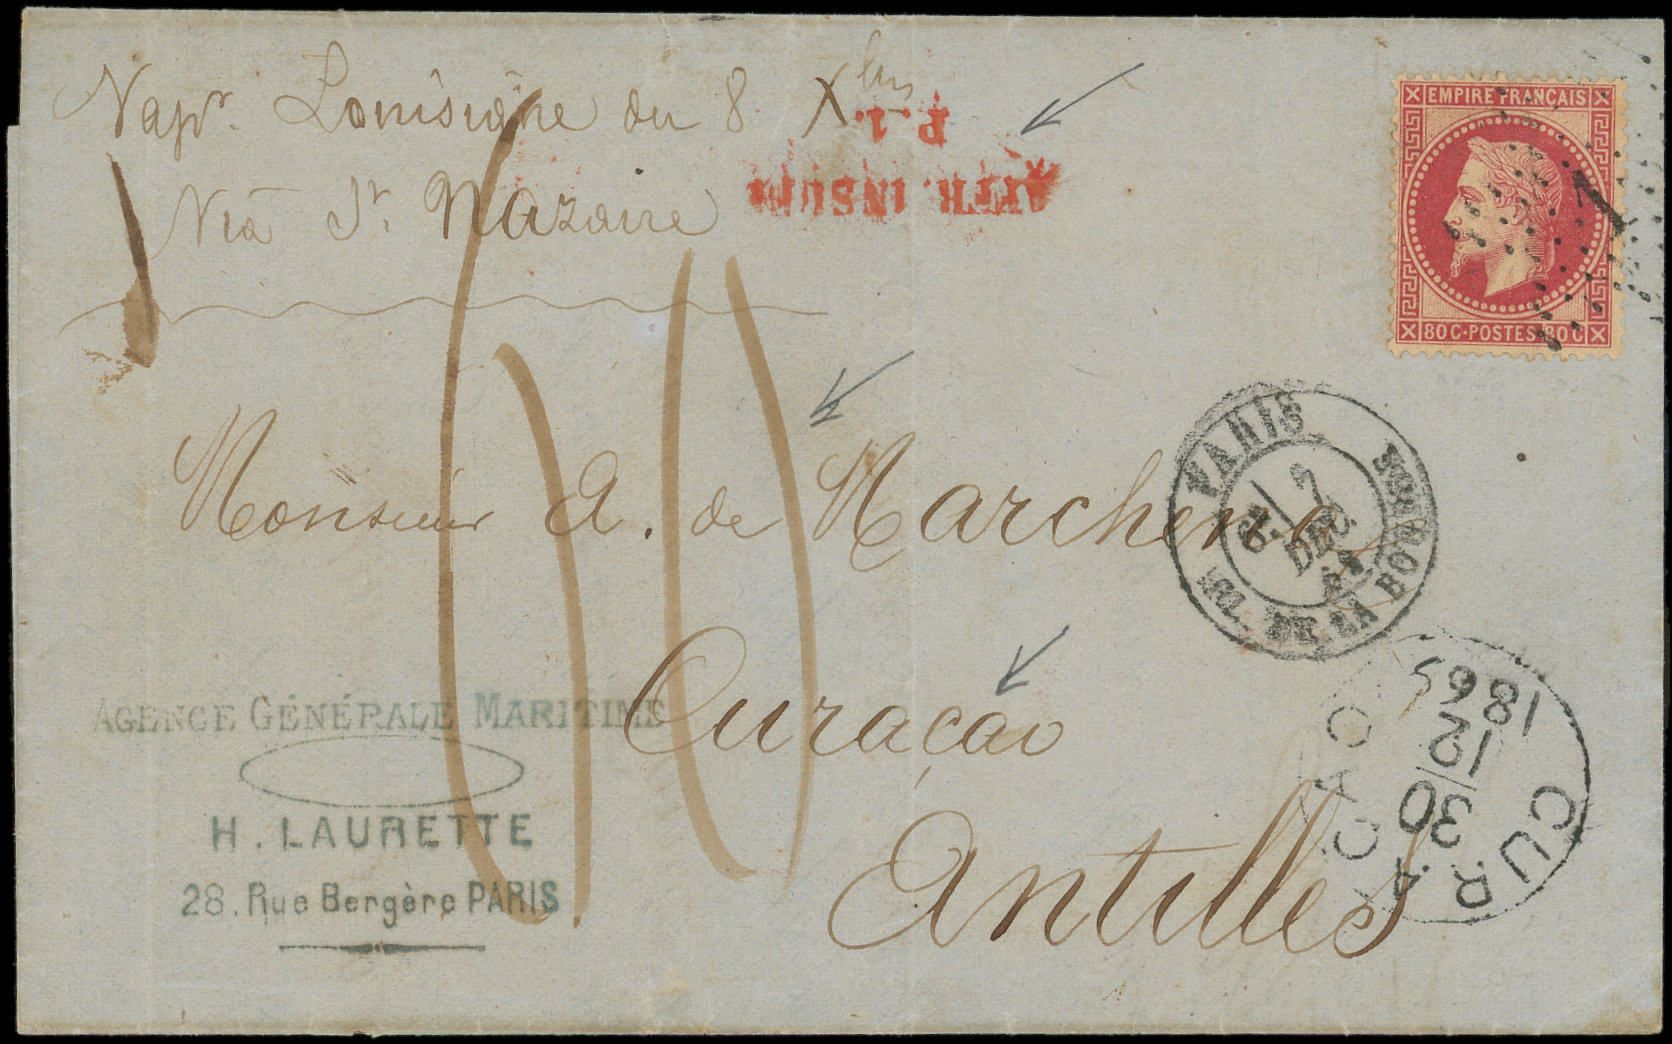 Vapr. Louisiane du 8 Xbre
Via St. Nazaire
P. 1.
AFFR. INSUFF
EMPIRE FRANÇAIS
80 C·POSTES·80 C
1
PARIS
7
DEC.
PL. DE LA BOURSE
60
Monsieur A. de Marchena
Curaçao
Antilles
CURAÇAO
30/12
1865
AGENCE GÉNÉRALE MARITIME
H. LAURETTE
28. Rue Bergère PARIS